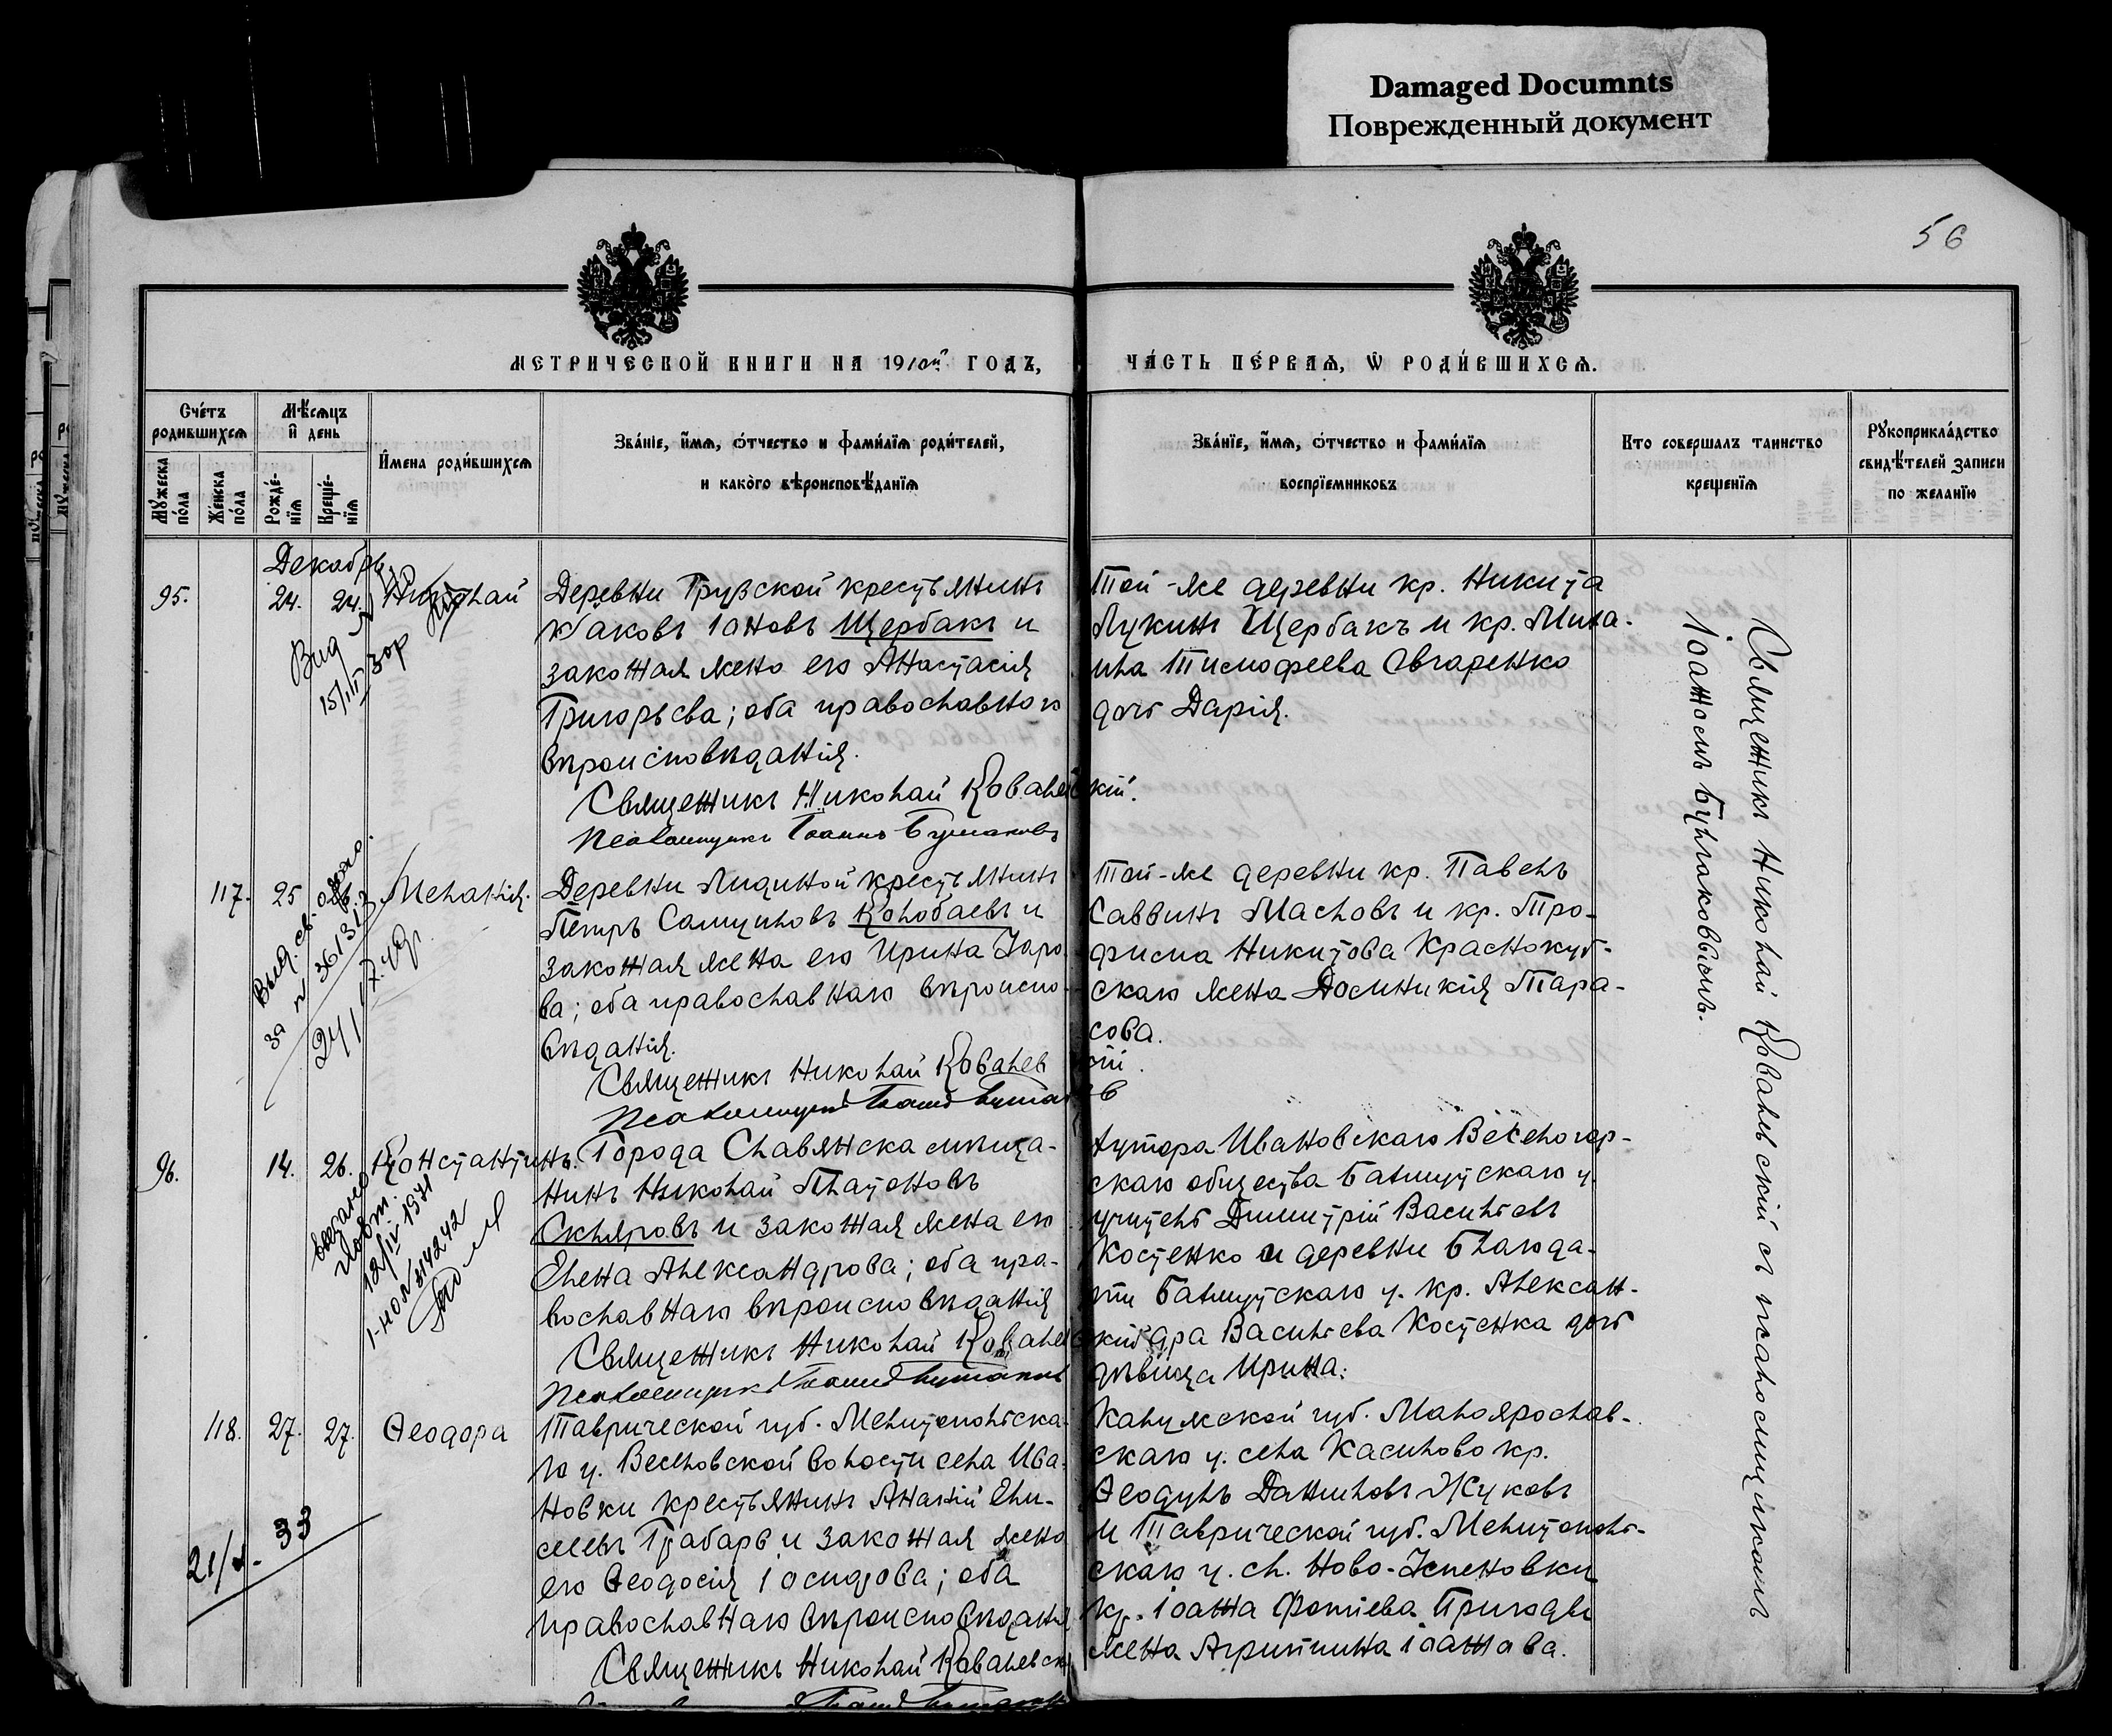 Damaged Documnts
Поврежденный документ
56
МЕТРИЧЕСКОЙ КНИГИ НА 1910й ГОДЪ,
ЧАСТЬ ПЕРВАЯ, Ѡ РОДИВШИХСЯ.
Счетъ родившихся
Мужеска пола
Женска пола
Мѣсяцъ и день
Рожденія
Крещенія
Имена родившихся
Званіе, имя, отчество и фамилія родителей,
и какого вѣроисповѣданія
Званіе, имя, отчество и фамилія
воспріемниковъ
Кто совершалъ таинство
крещенія
Рукоприкладство
свидѣтелей записи
по желанію
Декабрь
95.
24. 24.
Николай
Деревни Грузской крестьянинъ
Іаковъ Іоановъ Щербакъ и
законная жена его Анастасія
Григорьева; оба православного
вѣроисповѣданія.
Священникъ Николай Ковалевскій.
Псаломщикъ Іоаннъ Булгаковъ
Той-же деревни кр. Никита
Лукинъ Щербакъ и кр. Миха-
ила Тимофеева Овчаренко
дочь Дарія.
117.
25
Меланія.
Деревни Лидиной крестьянинъ
Петръ Самуиловъ Колобаевъ и
законная жена его Ирина
ва; оба православнаго вѣроиспо-
вѣданія.
Священникъ Николай Ковалевскій.
Псаломщикъ Іоаннъ Булгаковъ
Той-же деревни кр. Павелъ
Саввинъ Масловъ и кр. Тро-
фима Никитова Краснокут-
скаго жена Домникія Тара-
сова.
96.
14. 26.
Константинъ.
Города Славянска мѣща-
нинъ Николай Платоновъ
Скляровъ и законная жена его
Елена Александрова; оба пра-
вославнаго вѣроисповѣданія
Священникъ Николай Ковалевскій
Псаломщикъ Іоаннъ Булгаковъ
Хутора Ивановскаго Веселогор-
скаго общества Бахмутскаго у.
учитель Димитрій Васильевъ
Костенко и деревни Благода-
ти Бахмутскаго у. кр. Алексан-
дра Васильева Костенка дочь
дѣвица Ирина.
118.
27. 27.
Ѳеодора
Таврической губ. Мелитопольска-
го у. Веселовской волости села Ива-
новки крестьянинъ Ананій Ели-
сеевъ Грабарь и законная жена
его Ѳеодосія Іосифова; оба
православнаго вѣроисповѣданія
Священникъ Николай Ковалевскій
Калужской губ. Малоярослав-
скаго у. села Касилово кр.
Ѳеодулъ Даниловъ Жуковъ
и Таврической губ. Мелитополь-
скаго у. сл. Ново-Успеновки
кр. Іоанна Фотіева Пригоды
жена Агриппина Іоаннова.
21/X-33
Священникъ Николай Ковалевскій съ псаломщикомъ
Іоанномъ Булгаковымъ.